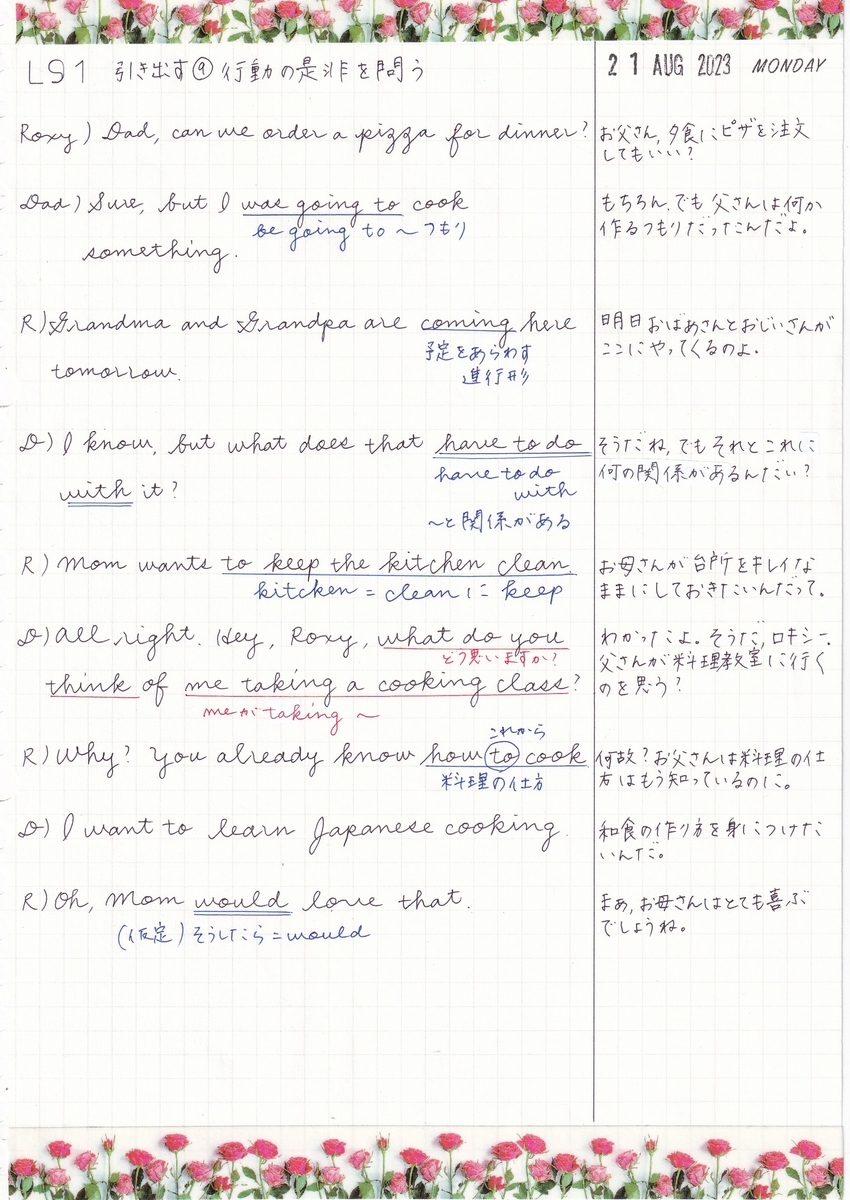 LS1 引き出す⑨行動の是非を問う
21 AUG 2023 MONDAY
Roxy) Dad, can we order a pizza for dinner?
お父さん, 夕食にピザを注文
してもいい?
Dad) Sure, but I was going to cook
be going to ~つもり
something.
もちろん. でも 父さんは何か
作るつもりだったこんだよ。
R) Grandma and Grandpa are coming here
予定をあらわす
進行形
tomorrow.
明日 おばあさんとおじいさんが
ここにやってくるのよ.
D) I know, but what does that have to do
with it?
have to do
with
~と関係がある
そうだね, でもそれとこれに
何の関係があるんだい?
R) Mom wants to keep the kitchen clean.
kitchen = clean に keep
お母さんが台所をキレイな
ままにしておきたいんだって.
D) All right. Hey, Roxy, what do you
どう思いますか?
think of me taking a cooking class?
meがtaking ~
わかったこよ. そうだ, ロキシー.
父さんが料理教室に行く
のを思う?
これから
R) Why? You already know how to cook
料理の仕方
何故? お父さんは料理の仕
方はもう知っているのに。
D) I want to learn Japanese cooking.
和食の作り方を身につけた
いんだ。
R) Oh, Mom would love that.
(仮定) そうしたら=would
まあ, お母さんはとても喜ぶ
でしょうね。